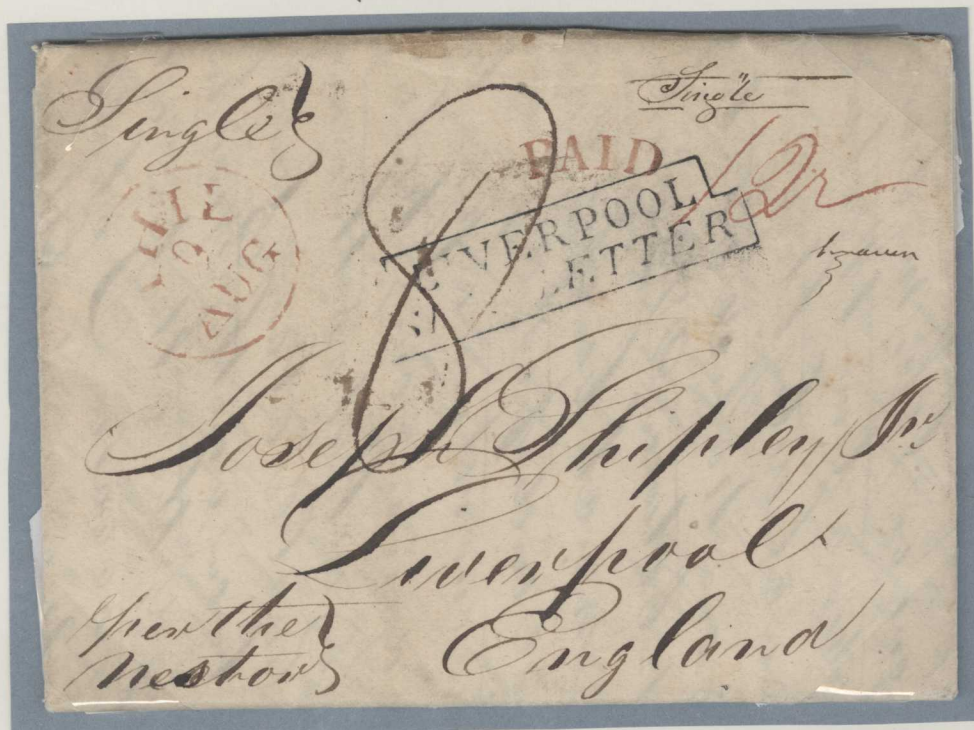 Single
Single
PAID
12½
LIVERPOOL
LETTER
8
AUG
Joseph Shipley Jr
Liverpool
England
per the
Nestor